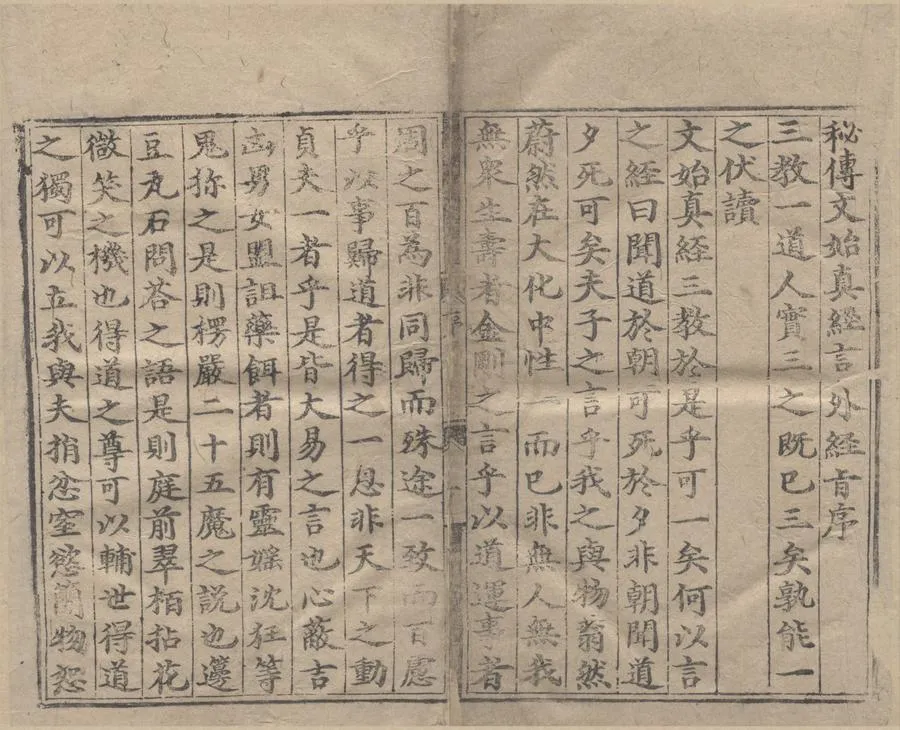 秘傳文始真經言外經旨序
三教一道人實三之既巳三矣孰能一
之伏讀
文始真經三教於是乎可一矣何以言
之經曰聞道於朝可死於夕非朝聞道
夕死可矣夫子之言乎我之與物蓊然
蔚然在大化中性一而巳非無人無我
無衆生壽者金剛之言乎以道運事者
周之百為非同歸而殊途一致而百慮
乎以事歸道者得之一息非天下之動
貞夫一者乎是皆大易之言也心蔽吉
凶男女盟詛藥餌者則有靈媱沈狂等
鬼狝之是則楞嚴二十五魔之說也邉
豆瓦石問荅之語是則庭前翠栢拈花
微笑之機也得道之尊可以輔世得道
之獨可以立我與夫捎忿窒慾簡物恕